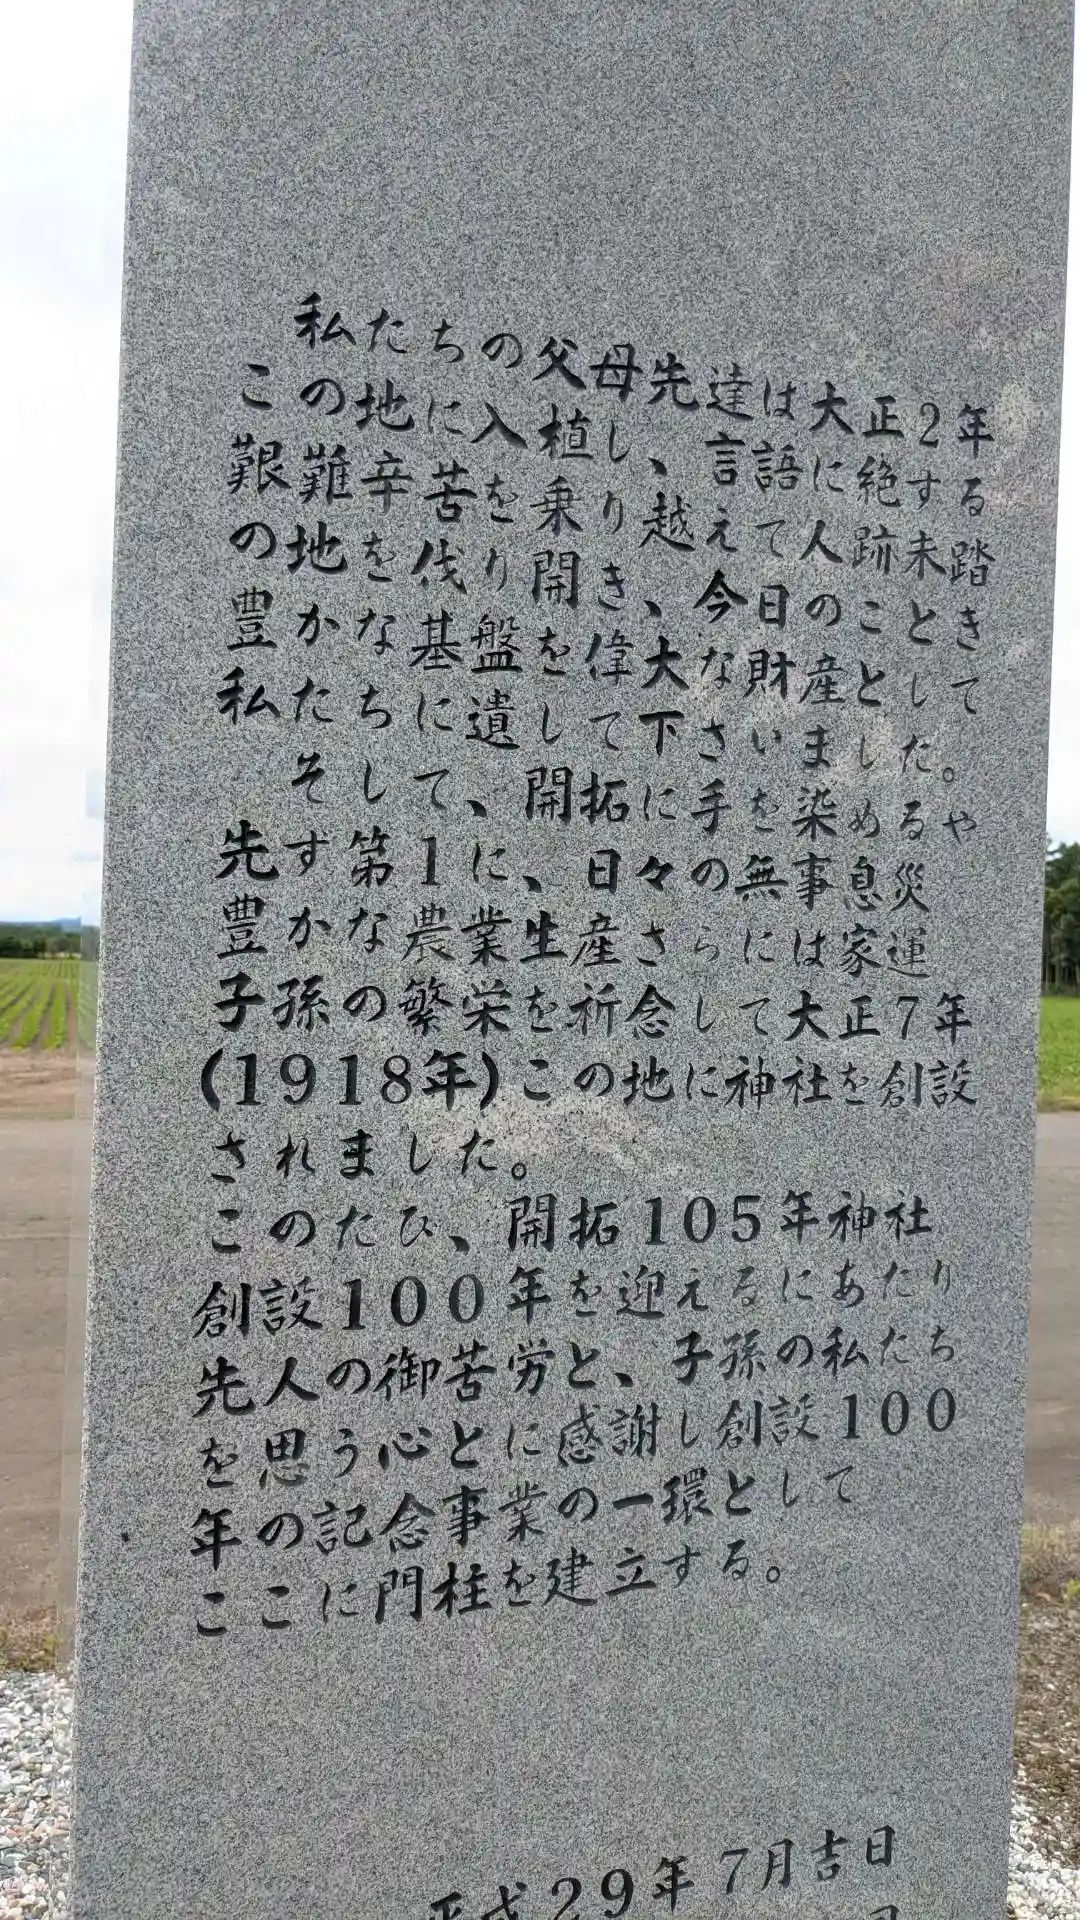 私たちの父母先達は大正2年
この地に入植し、言語に絶する
艱難辛苦を乗り越えて人跡未踏
の地を伐り開き、今日のことき
豊かな基盤を偉大な財産として
私たちに遺して下さいました。
そして、開拓に手を染めるや
先ず第1に、日々の無事息災
豊かな農業生産さらには家運
子孫の繁栄を祈念して大正7年
(1918年)この地に神社を創設
されました。
このたび、開拓105年神社
創設100年を迎えるにあたり
先人の御苦労と、子孫の私たち
を思う心とに感謝し創設100
年の記念事業の一環として
ここに門柱を建立する。
平成29年7月吉日